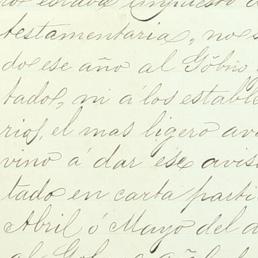 no estaba impuesto d
testamentaria, no s
do ese año al Gōbno
tados, ni á los estable
rios, el mas ligero av
vino á dar ese aviso
tado en carta parti
Abril ó Mayo del a